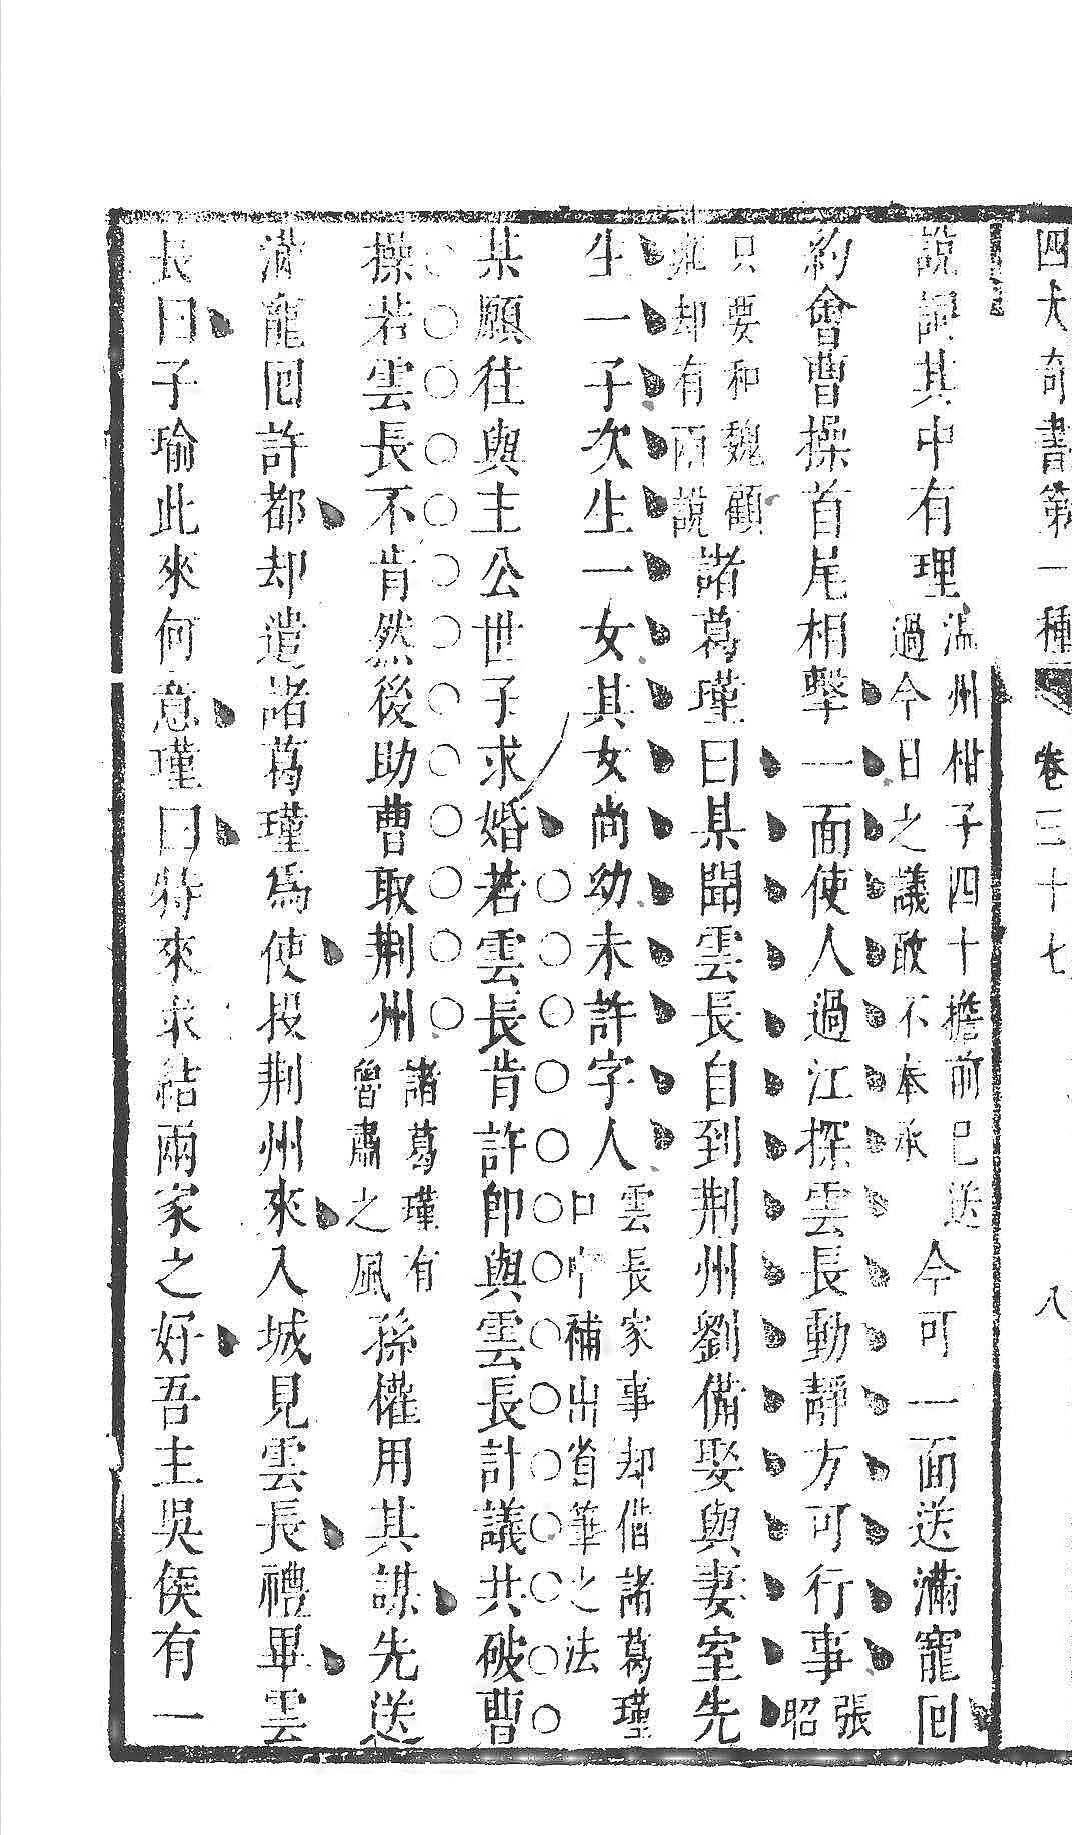 四大奇書第一種 卷三十七 八
說詞其中有理溫州柑子四十擔前已送過今日之議敢不奉承今可一面送滿寵回
約會曹操首尾相擊一面使人過江探雲長動靜方可行事張昭
只要和魏顧雍却有兩說諸葛瑾曰某聞雲長自到荆州劉備娶與妻室先
生一子次生一女其女尚幼未許字人雲長家事却借諸葛瑾口中補出省筆之法
某願往與主公世子求婚若雲長肯許即與雲長計議共破曹
操若雲長不肯然後助曹取荆州諸葛瑾有魯肅之風孫權用其謀先送
滿寵回許都却遣諸葛瑾爲使投荆州來入城見雲長禮畢雲
長曰子瑜此來何意瑾曰特來求結兩家之好吾主吳侯有一